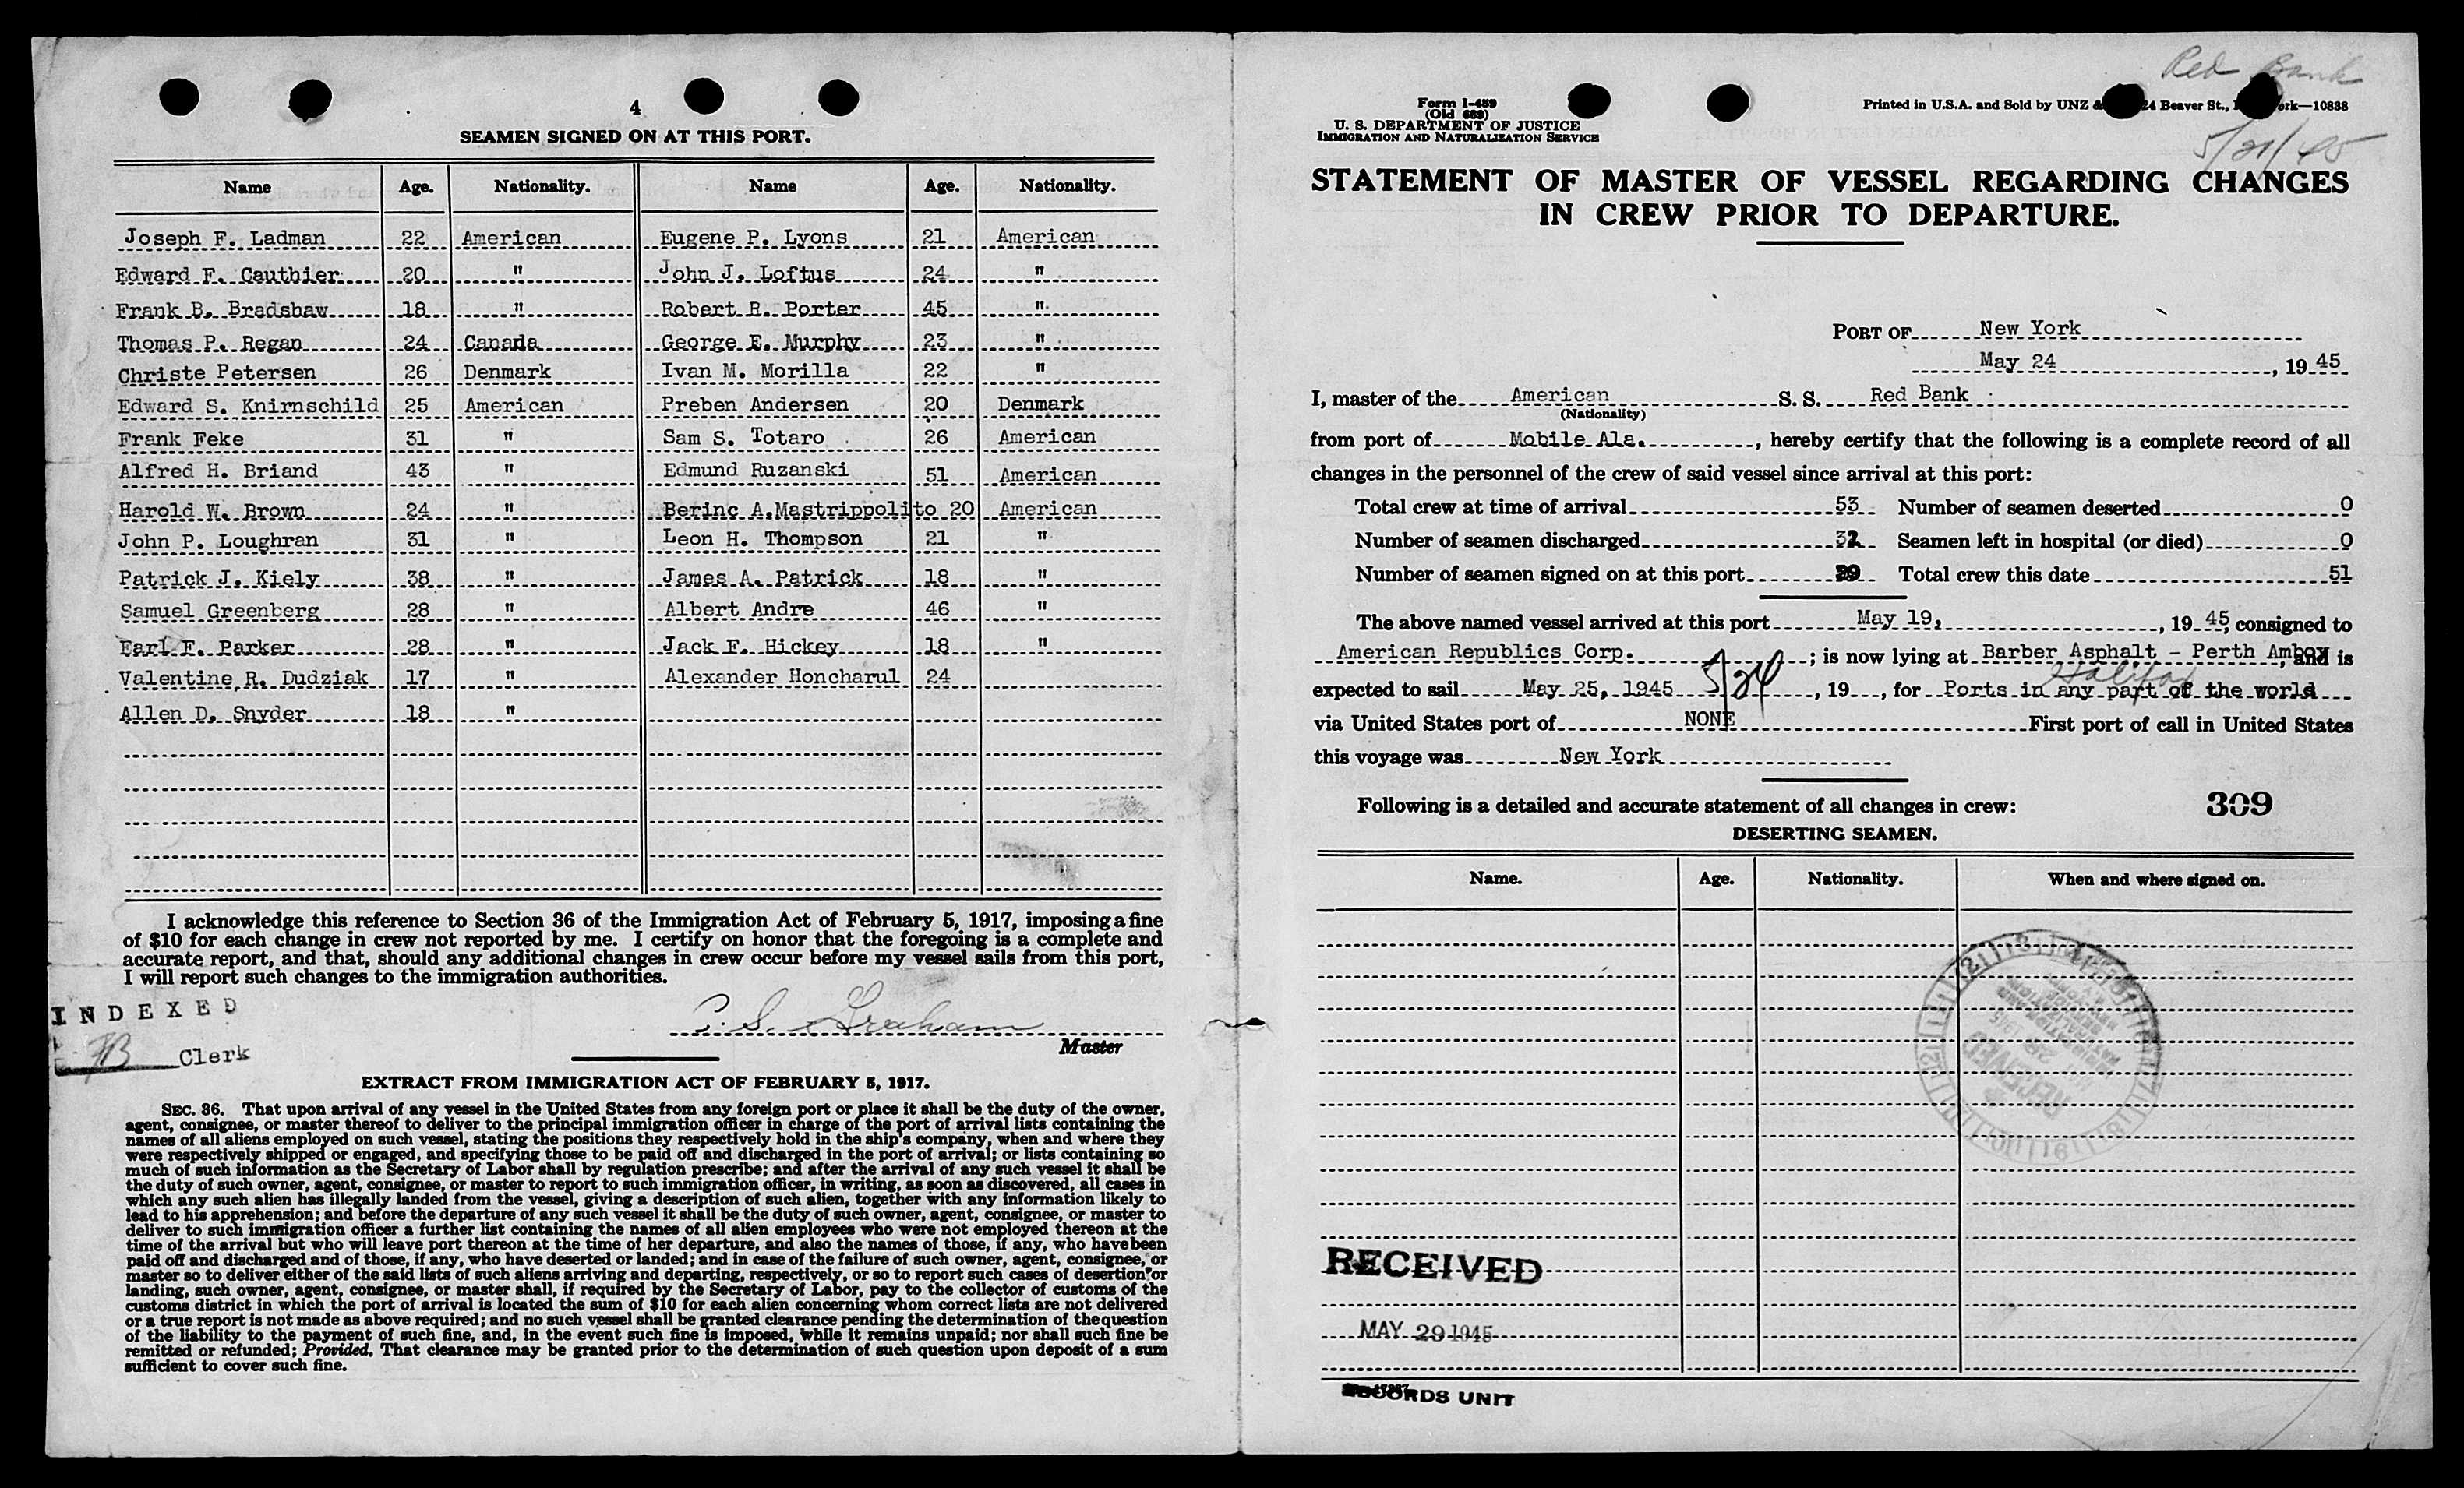 4
SEAMEN SIGNED ON AT THIS PORT.
Name Age. Nationality. Name Age. Nationality.
Joseph F. Ladman 22 American Eugene P. Lyons 21 American
Edward F. Gauthier 20 " John J. Loftus 24 "
Frank B. Bradshaw 18 " Robert R. Porter 45 "
Thomas P. Regan 24 Canada George E. Murphy 23 "
Christe Petersen 26 Denmark Ivan M. Morilla 22 "
Edward S. Knirnschild 25 American Preben Andersen 20 Denmark
Frank Feke 31 " Sam S. Totaro 26 American
Alfred H. Briand 43 " Edmund Ruzanski 51 American
Harold W. Brown 24 " Berinc A.Mastrippolito 20 American
John P. Loughran 31 " Leon H. Thompson 21 "
Patrick J. Kiely 38 " James A. Patrick 18 "
Samuel Greenberg 28 " Albert Andre 46 "
Earl F. Parker 28 " Jack F. Hickey 18 "
Valentine R. Dudziak 17 " Alexander Honcharul 24
Allen D. Snyder 18 "
I acknowledge this reference to Section 36 of the Immigration Act of February 5, 1917, imposing a fine
of $10 for each change in crew not reported by me. I certify on honor that the foregoing is a complete and
accurate report, and that, should any additional changes in crew occur before my vessel sails from this port,
I will report such changes to the immigration authorities.
INDEXED
C. S. Graham
Master
FB Clerk
EXTRACT FROM IMMIGRATION ACT OF FEBRUARY 5, 1917.
SEC. 36. That upon arrival of any vessel in the United States from any foreign port or place it shall be the duty of the owner,
agent, consignee, or master thereof to deliver to the principal immigration officer in charge of the port of arrival lists containing the
names of all aliens employed on such vessel, stating the positions they respectively hold in the ship's company, when and where they
were respectively shipped or engaged, and specifying those to be paid off and discharged in the port of arrival; or lists containing so
much of such information as the Secretary of Labor shall by regulation prescribe; and after the arrival of any such vessel it shall be
the duty of such owner, agent, consignee, or master to report to such immigration officer, in writing, as soon as discovered, all cases in
which any such alien has illegally landed from the vessel, giving a description of such alien, together with any information likely to
lead to his apprehension; and before the departure of any such vessel it shall be the duty of such owner, agent, consignee, or master to
deliver to such immigration officer a further list containing the names of all alien employees who were not employed thereon at the
time of the arrival but who will leave port thereon at the time of her departure, and also the names of those, if any, who have been
paid off and discharged and of those, if any, who have deserted or landed; and in case of the failure of such owner, agent, consignee, or
master so to deliver either of the said lists of such aliens arriving and departing, respectively, or so to report such cases of desertion or
landing, such owner, agent, consignee, or master shall, if required by the Secretary of Labor, pay to the collector of customs of the
customs district in which the port of arrival is located the sum of $10 for each alien concerning whom correct lists are not delivered
or a true report is not made as above required; and no such vessel shall be granted clearance pending the determination of the question
of the liability to the payment of such fine, and, in the event such fine is imposed, while it remains unpaid; nor shall such fine be
remitted or refunded; Provided, That clearance may be granted prior to the determination of such question upon deposit of a sum
sufficient to cover such fine.
Red Bank
Form I-489
(Old 689)
U. S. DEPARTMENT OF JUSTICE
IMMIGRATION AND NATURALIZATION SERVICE
Printed in U.S.A. and Sold by UNZ & 24 Beaver St., ork—10838
STATEMENT OF MASTER OF VESSEL REGARDING CHANGES
IN CREW PRIOR TO DEPARTURE.
PORT OF New York
May 24, 1945
I, master of the American S. S. Red Bank
(Nationality)
from port of Mobile Ala., hereby certify that the following is a complete record of all
changes in the personnel of the crew of said vessel since arrival at this port:
Total crew at time of arrival 53 Number of seamen deserted 0
Number of seamen discharged Seamen left in hospital (or died) 0
Number of seamen signed on at this port 29 Total crew this date 51
The above named vessel arrived at this port May 19, 1945, consigned to
American Republics Corp. ; is now lying at Barber Asphalt - Perth Amboy, and is
Halifax
expected to sail May 25, 1945 5/24, 19 , for Ports in any part of the world
via United States port of NONE First port of call in United States
this voyage was New York
Following is a detailed and accurate statement of all changes in crew: 309
DESERTING SEAMEN.
Name. Age. Nationality. When and where signed on.
RECEIVED
MAY 29 1945
RECORDS UNIT